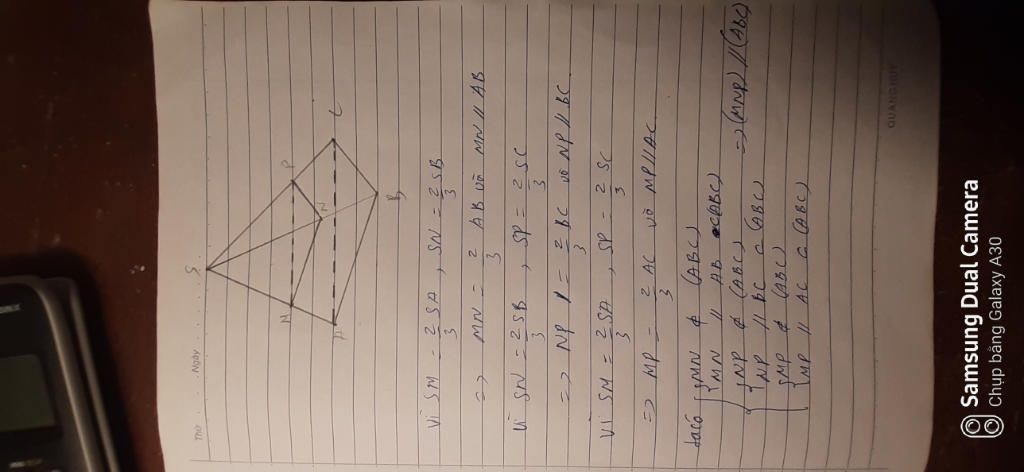 Thứ ........ Ngày ........
S
M
P
N
A
C
B
Vì SM = 2/3 SA , SN = 2/3 SB
=> MN = 2/3 AB và MN // AB
Vì SN = 2/3 SB , SP = 2/3 SC
=> NP = 2/3 BC và NP // BC
Vì SM = 2/3 SA , SP = 2/3 SC
=> MP = 2/3 AC và MP // AC
ta có { MN ⊄ (ABC)
MN // AB ⊂ (ABC)
{ NP ⊄ (ABC) => (MNP) // (ABC)
NP // BC ⊂ (ABC)
{ MP ⊄ (ABC)
MP // AC ⊂ (ABC)
QUANG HUY
Samsung Dual Camera
Chụp bằng Galaxy A30